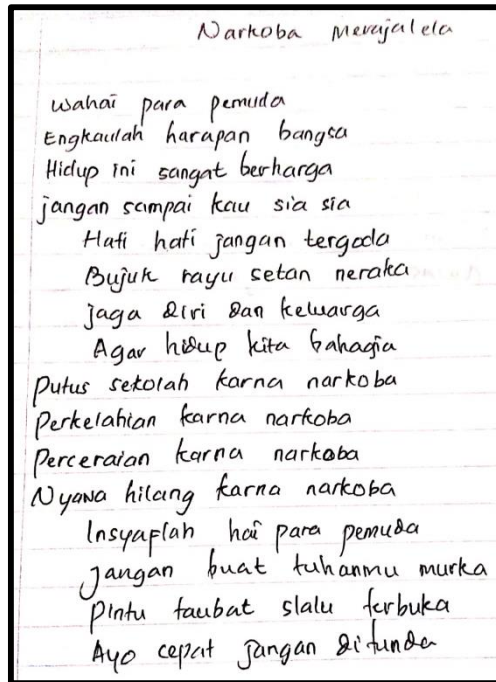 Narkoba Merajalela
wahai para pemuda
Engkaulah harapan bangsa
Hidup ini sangat berharga
jangan sampai kau sia sia
Hati hati jangan tergoda
Bujuk rayu setan neraka
jaga diri dan keluarga
Agar hidup kita bahagia
putus sekolah karna narkoba
Perkelahian karna narkoba
Perceraian karna narkoba
Nyawa hilang karna narkoba
Insyaflah hai para pemuda
Jangan buat tuhanmu murka
pintu taubat slalu terbuka
Ayo cepat jangan ditunda